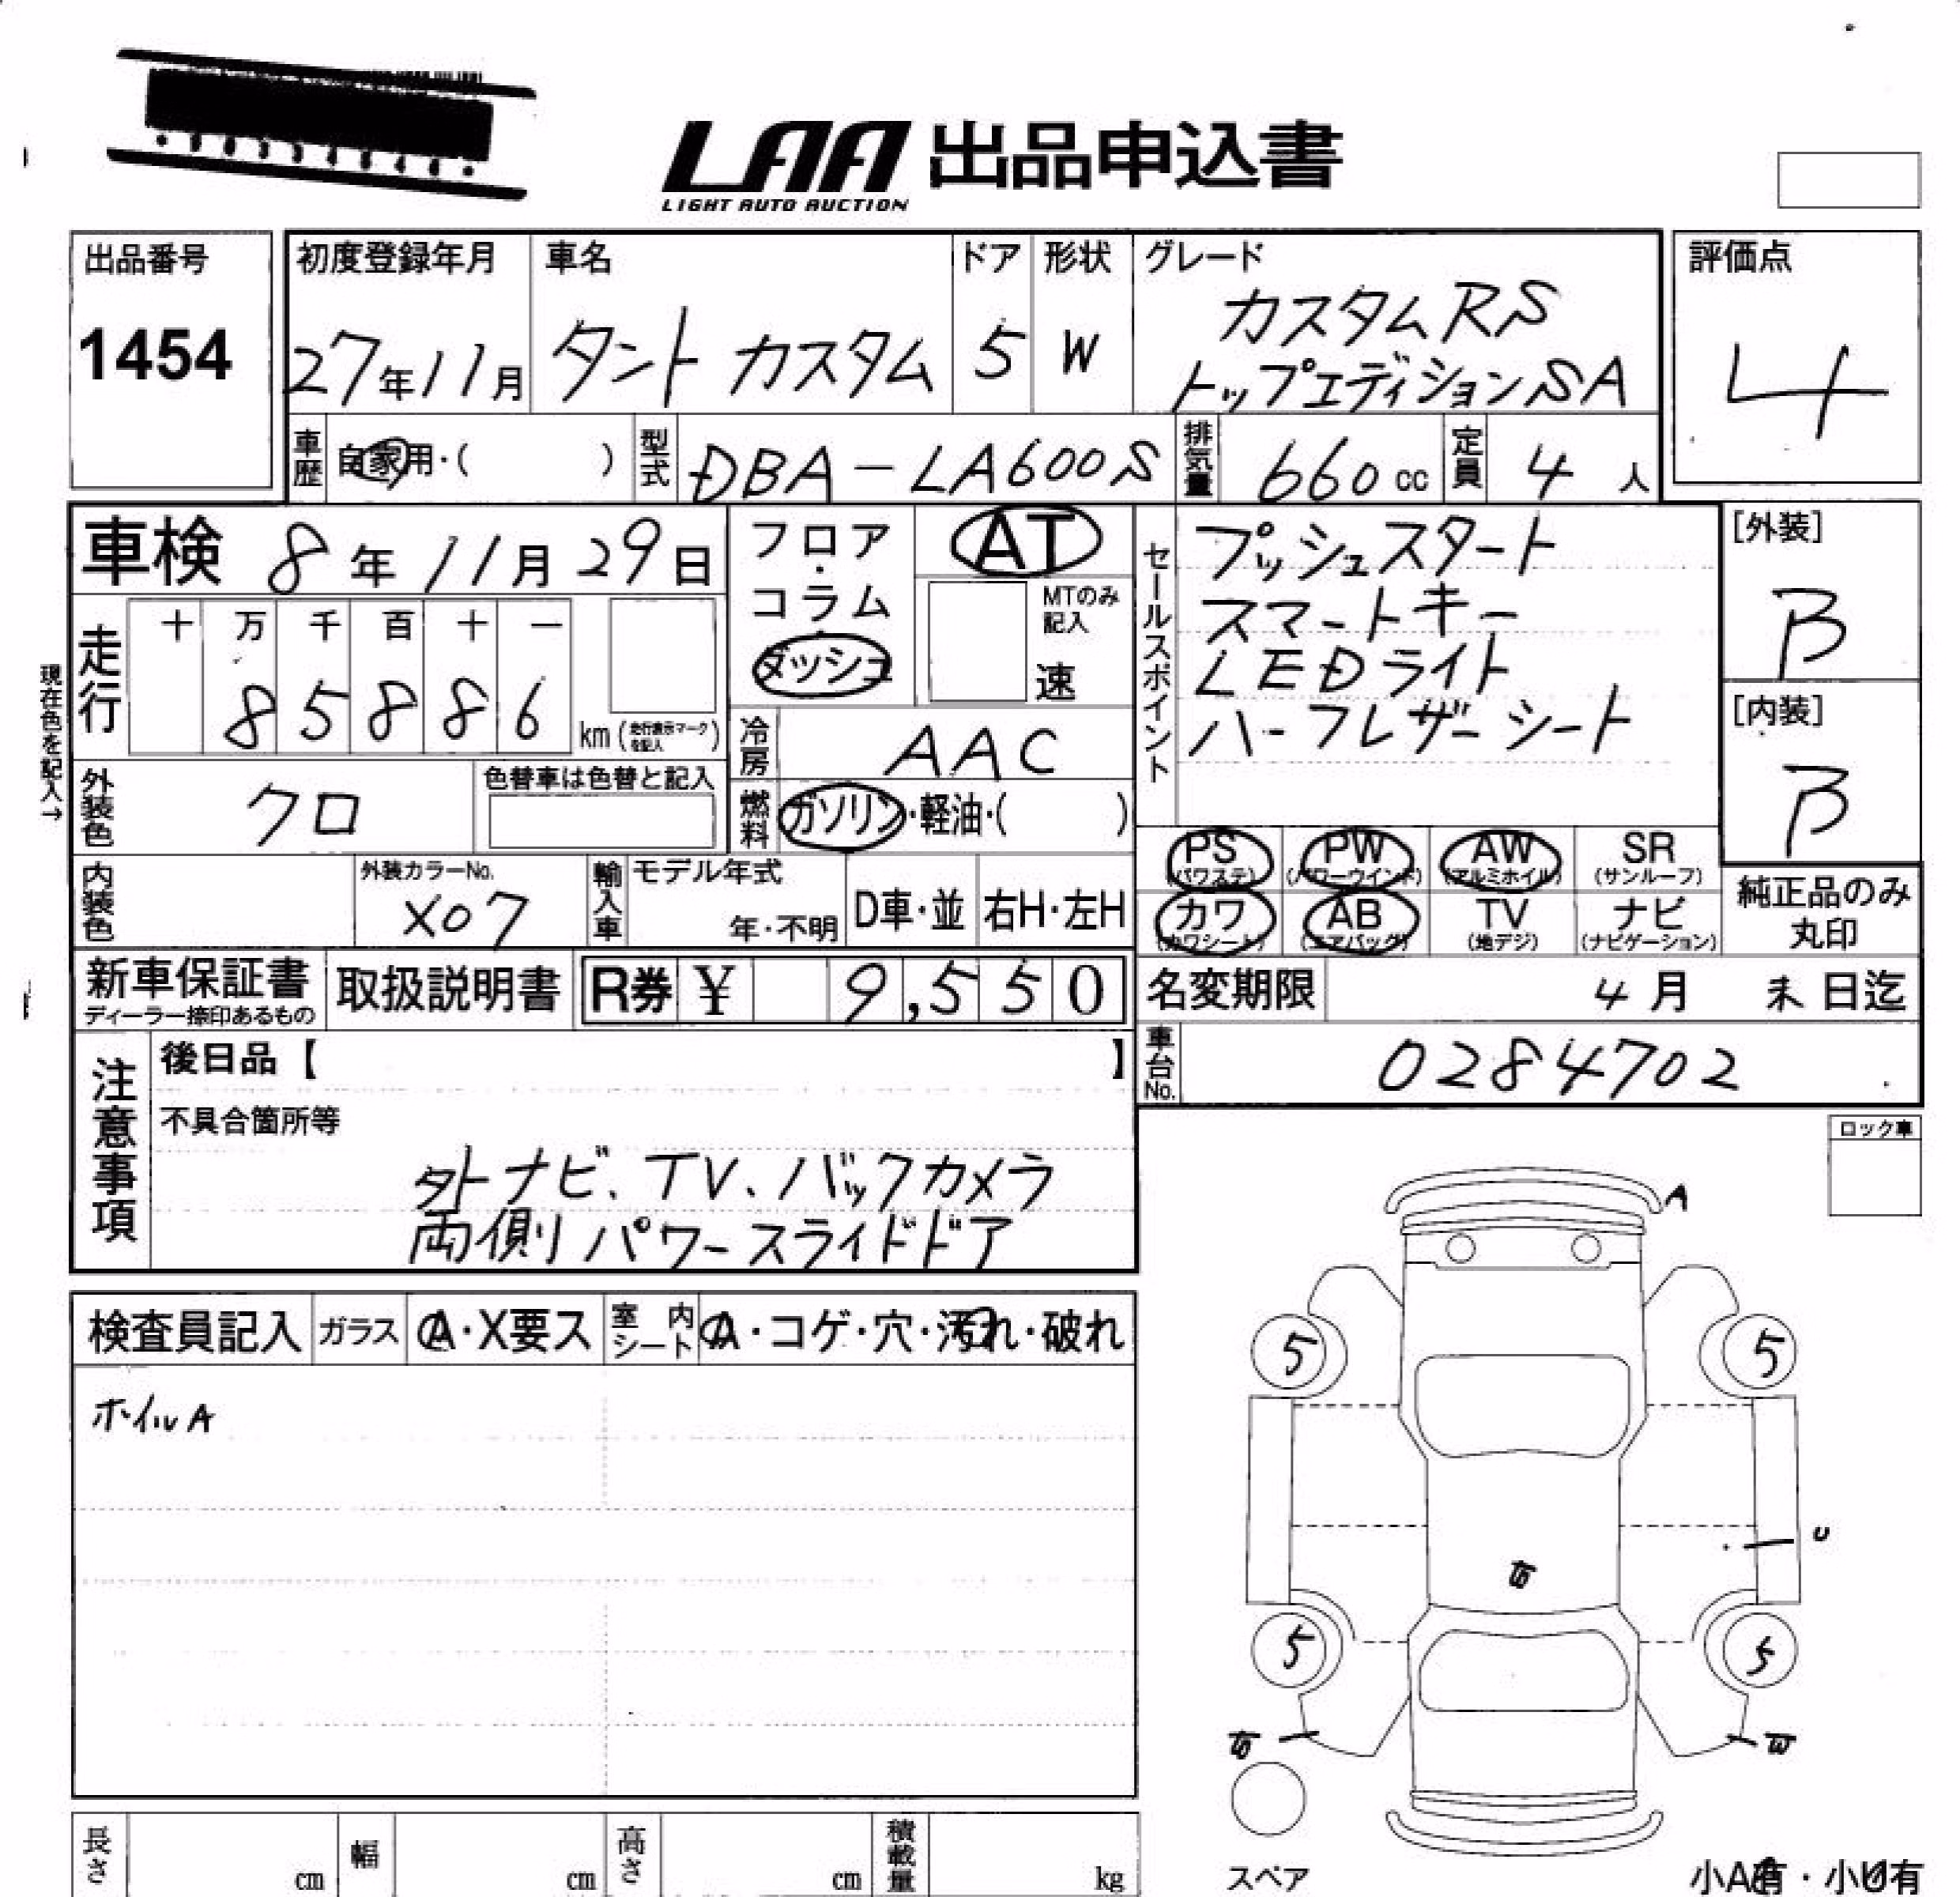 LAA 出品申込書
LIGHT AUTO AUCTION
出品番号
1454
初度登録年月
27年11月
車名
タント カスタム
ドア
5
形状
W
グレード
カスタムRS
トップエディションSA
評価点
4
車歴 自家用・( )
型式 DBA-LA600S
排気量 660 cc
定員 4 人
車検 8年11月29日
フロア・コラム・ダッシュ
AT
MTのみ記入
速
セールスポイント
プッシュスタート
スマートキー
LEDライト
ハーフレザーシート
[外装]
B
[内装]
B
現在色を記入→
走行
十 万 千 百 十 一
8 5 8 8 6 km (走行表示マークを記入)
冷房 AAC
外装色 クロ
色替車は色替と記入
燃料 ガソリン・軽油・( )
PS (パワステ)
PW (パワーウインド)
AW (アルミホイル)
SR (サンルーフ)
カワ (カワシート)
AB (エアバッグ)
TV (地デジ)
ナビ (ナビゲーション)
純正品のみ丸印
内装色
外装カラーNo.
X07
輸入車
モデル年式
年・不明
D車・並
右H・左H
新車保証書
ディーラー捺印あるもの
取扱説明書
R券 ¥ 9,550
名変期限 4月 末日迄
車台No. 0284702
注意事項
後日品【 】
不具合箇所等
外ナビ、TV、バックカメラ
両側パワースライドドア
ロック車
検査員記入
ガラス A・X要ス
室内シート A・コゲ・穴・汚れ・破れ
ホイルA
A
5 5
U
5 5
W
スペア
長さ cm
幅 cm
高さ cm
積載量 kg
小A有・小U有